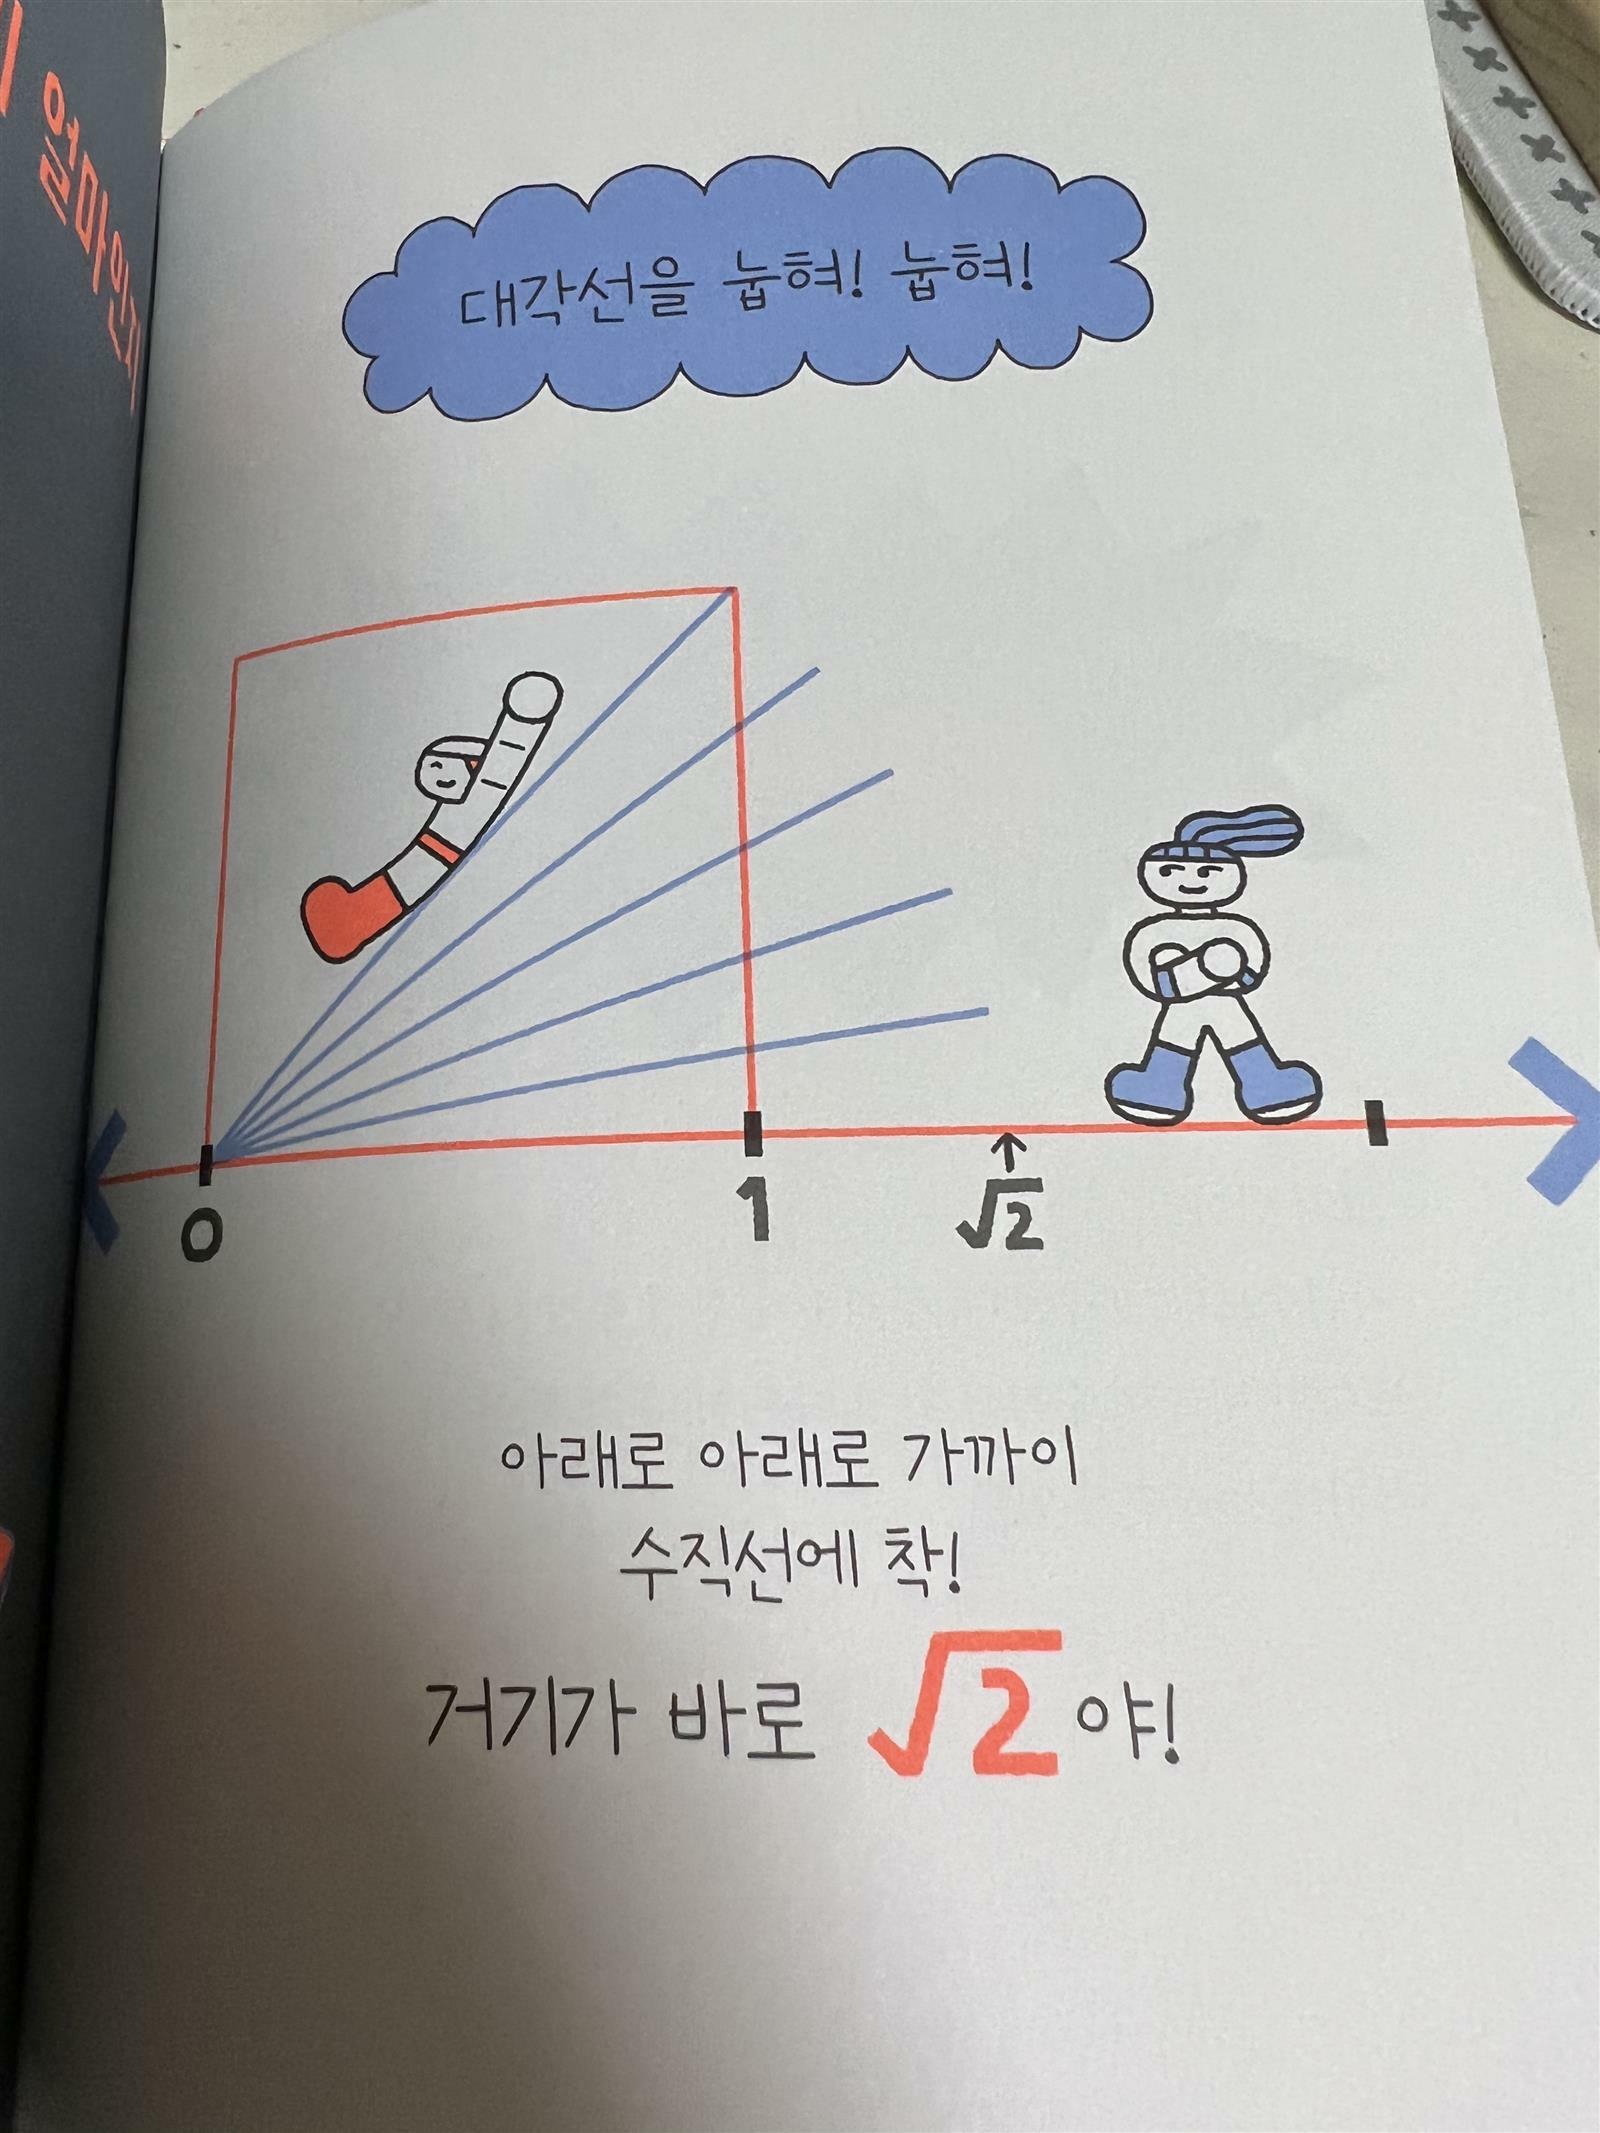 얼마인지
대각선을 눕혀! 눕혀!
0 1 √2
아래로 아래로 가까이
수직선에 착!
거기가 바로 √2야!